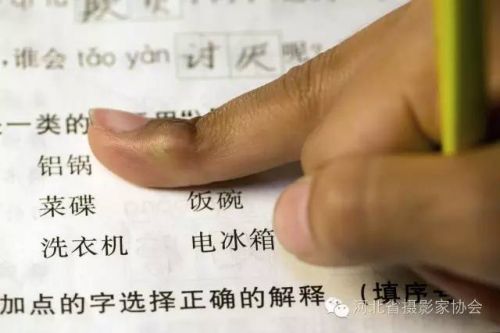 ,谁会 tǎo yàn 讨厌 呢?
一类的
铝锅
菜碟 饭碗
洗衣机 电冰箱
加点的字选择正确的解释 (填序
河北省摄影家协会